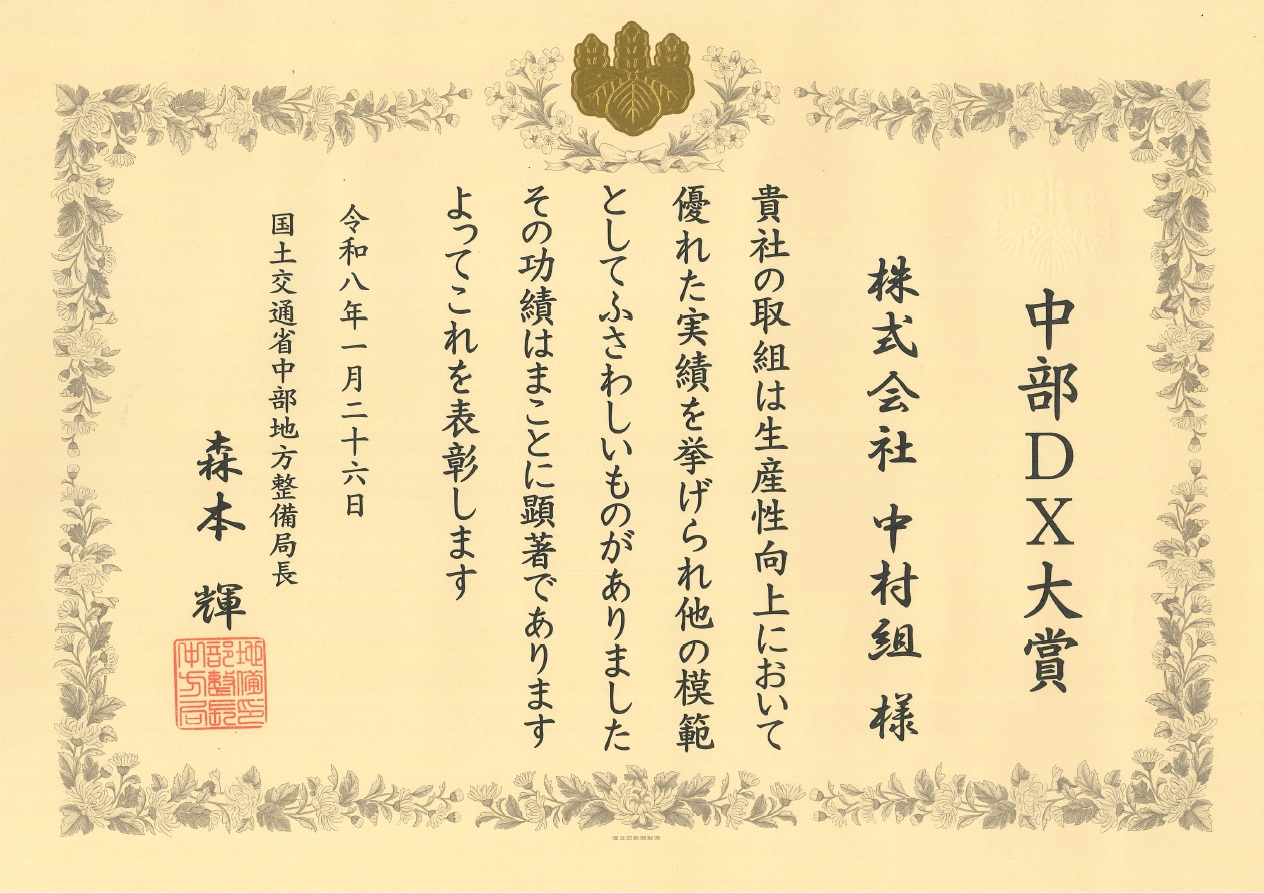 中部DX大賞
株式会社 中村組 様
貴社の取組は生産性向上において
優れた実績を挙げられ他の模範
としてふさわしいものがありました
その功績はまことに顕著であります
よってこれを表彰します
令和八年一月二十六日
国土交通省中部地方整備局長
森本 輝